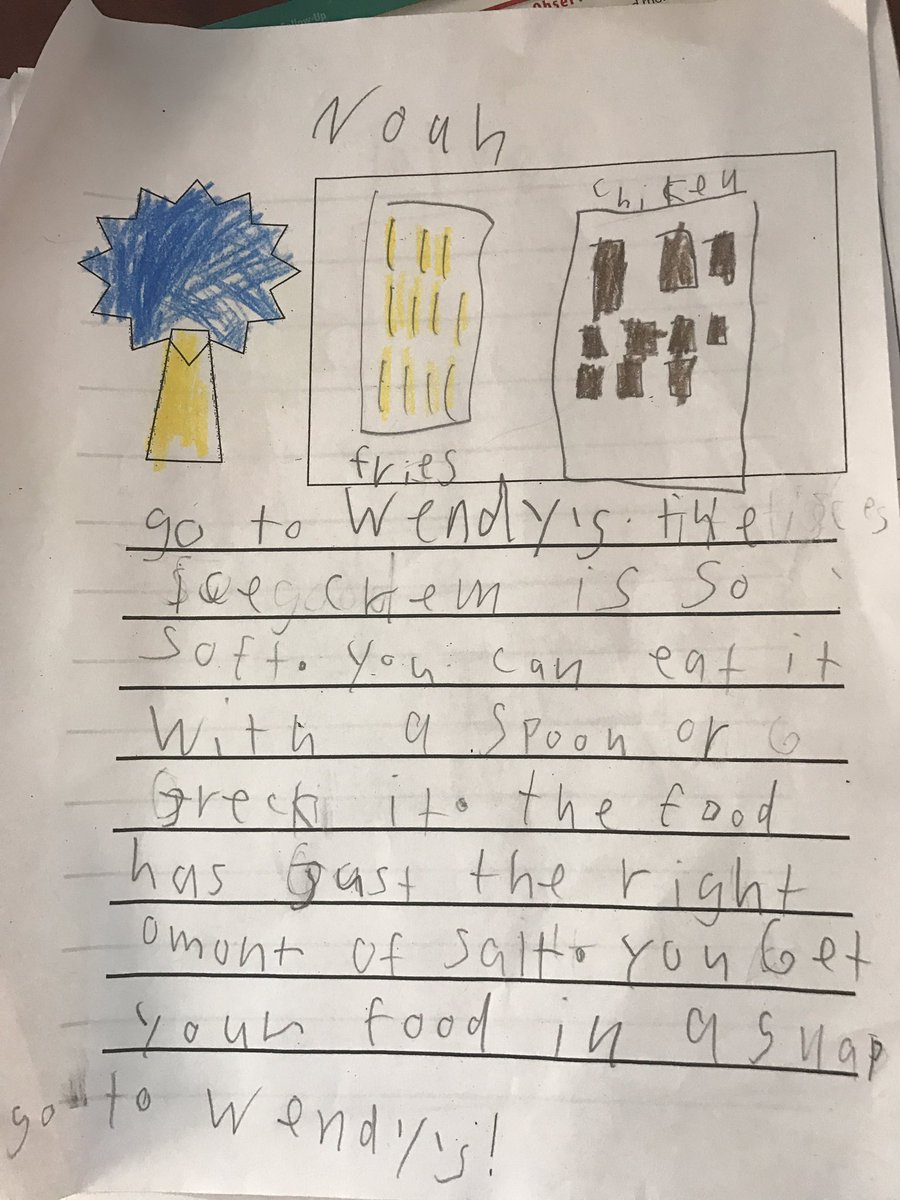 Noah
chiken
fries
go to Wendy's. the
Icecrem is so
soft. you can eat it
with a spoon or
greck it. the food
has gast the right
omont of salt. you Get
youn food in a snap
go to Wendy's!